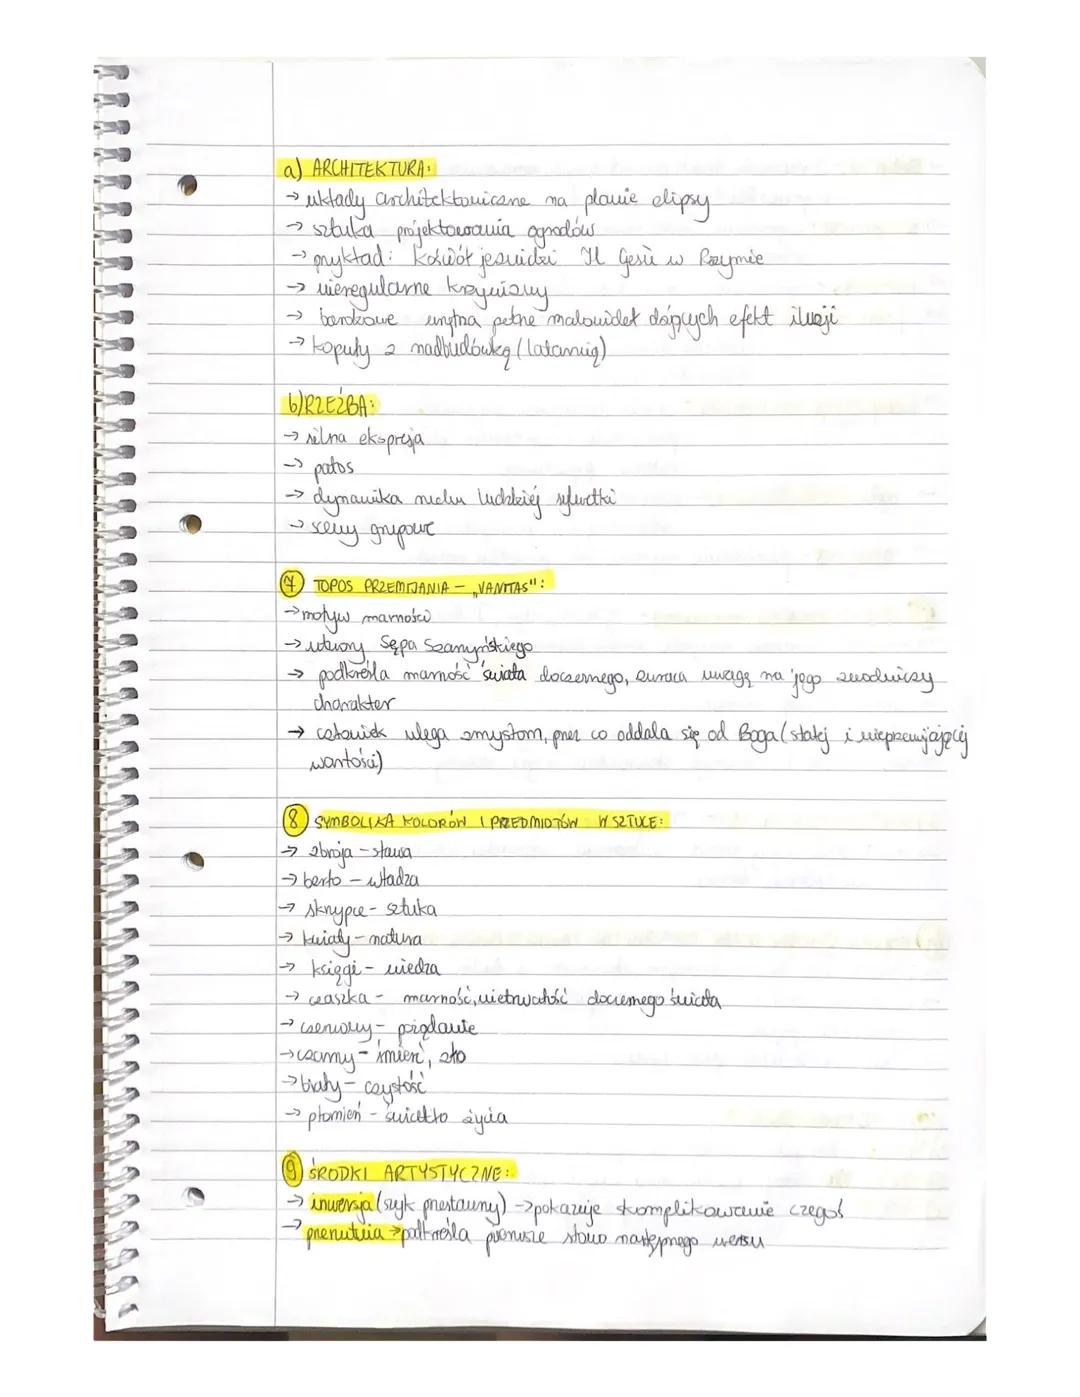 a) ARCHITEKTURA:
→ układy architektoniczne na planie elipsy
→ sztuka projektowania ogrodów
→ przykład: kościół jezuidzi Il Gesù w Rzymie
→ nieregularne krzywizny
→ barokowe wnętrza pełne malowideł dających efekt iluzji
→ kopuły z nadbudówką (latarnią)
b) RZEŹBA:
→ silna ekspresja
→ patos
→ dynamika ruchu ludzkiej sylwetki
→ sceny grupowe
7 TOPOS PRZEMIJANIA – „VANITAS":
→ motyw marności
→ utwory Sępa Szarzyńskiego
→ podkreśla marność świata doczesnego, zwraca uwagę na jego zwodniczy
charakter
→ człowiek ulega zmysłom, przez co oddala się od Boga (stałej i nieprzemijającej
wartości)
8 SYMBOLIKA KOLORÓW I PRZEDMIOTÓW W SZTUCE:
→ zbroja – sława
→ berło – władza
→ skrzypce – sztuka
→ kwiaty – natura
→ księgi – wiedza
→ czaszka – marność, nietrwałość doczesnego świata
→ czerwony – pożądanie
→ czarny – śmierć, zło
→ biały – czystość
→ płomień – światło życia
9 ŚRODKI ARTYSTYCZNE:
→ inwersja (szyk przestawny) → pokazuje skomplikowanie czegoś
→ przerzutnia → podkreśla pierwsze słowo następnego wersu